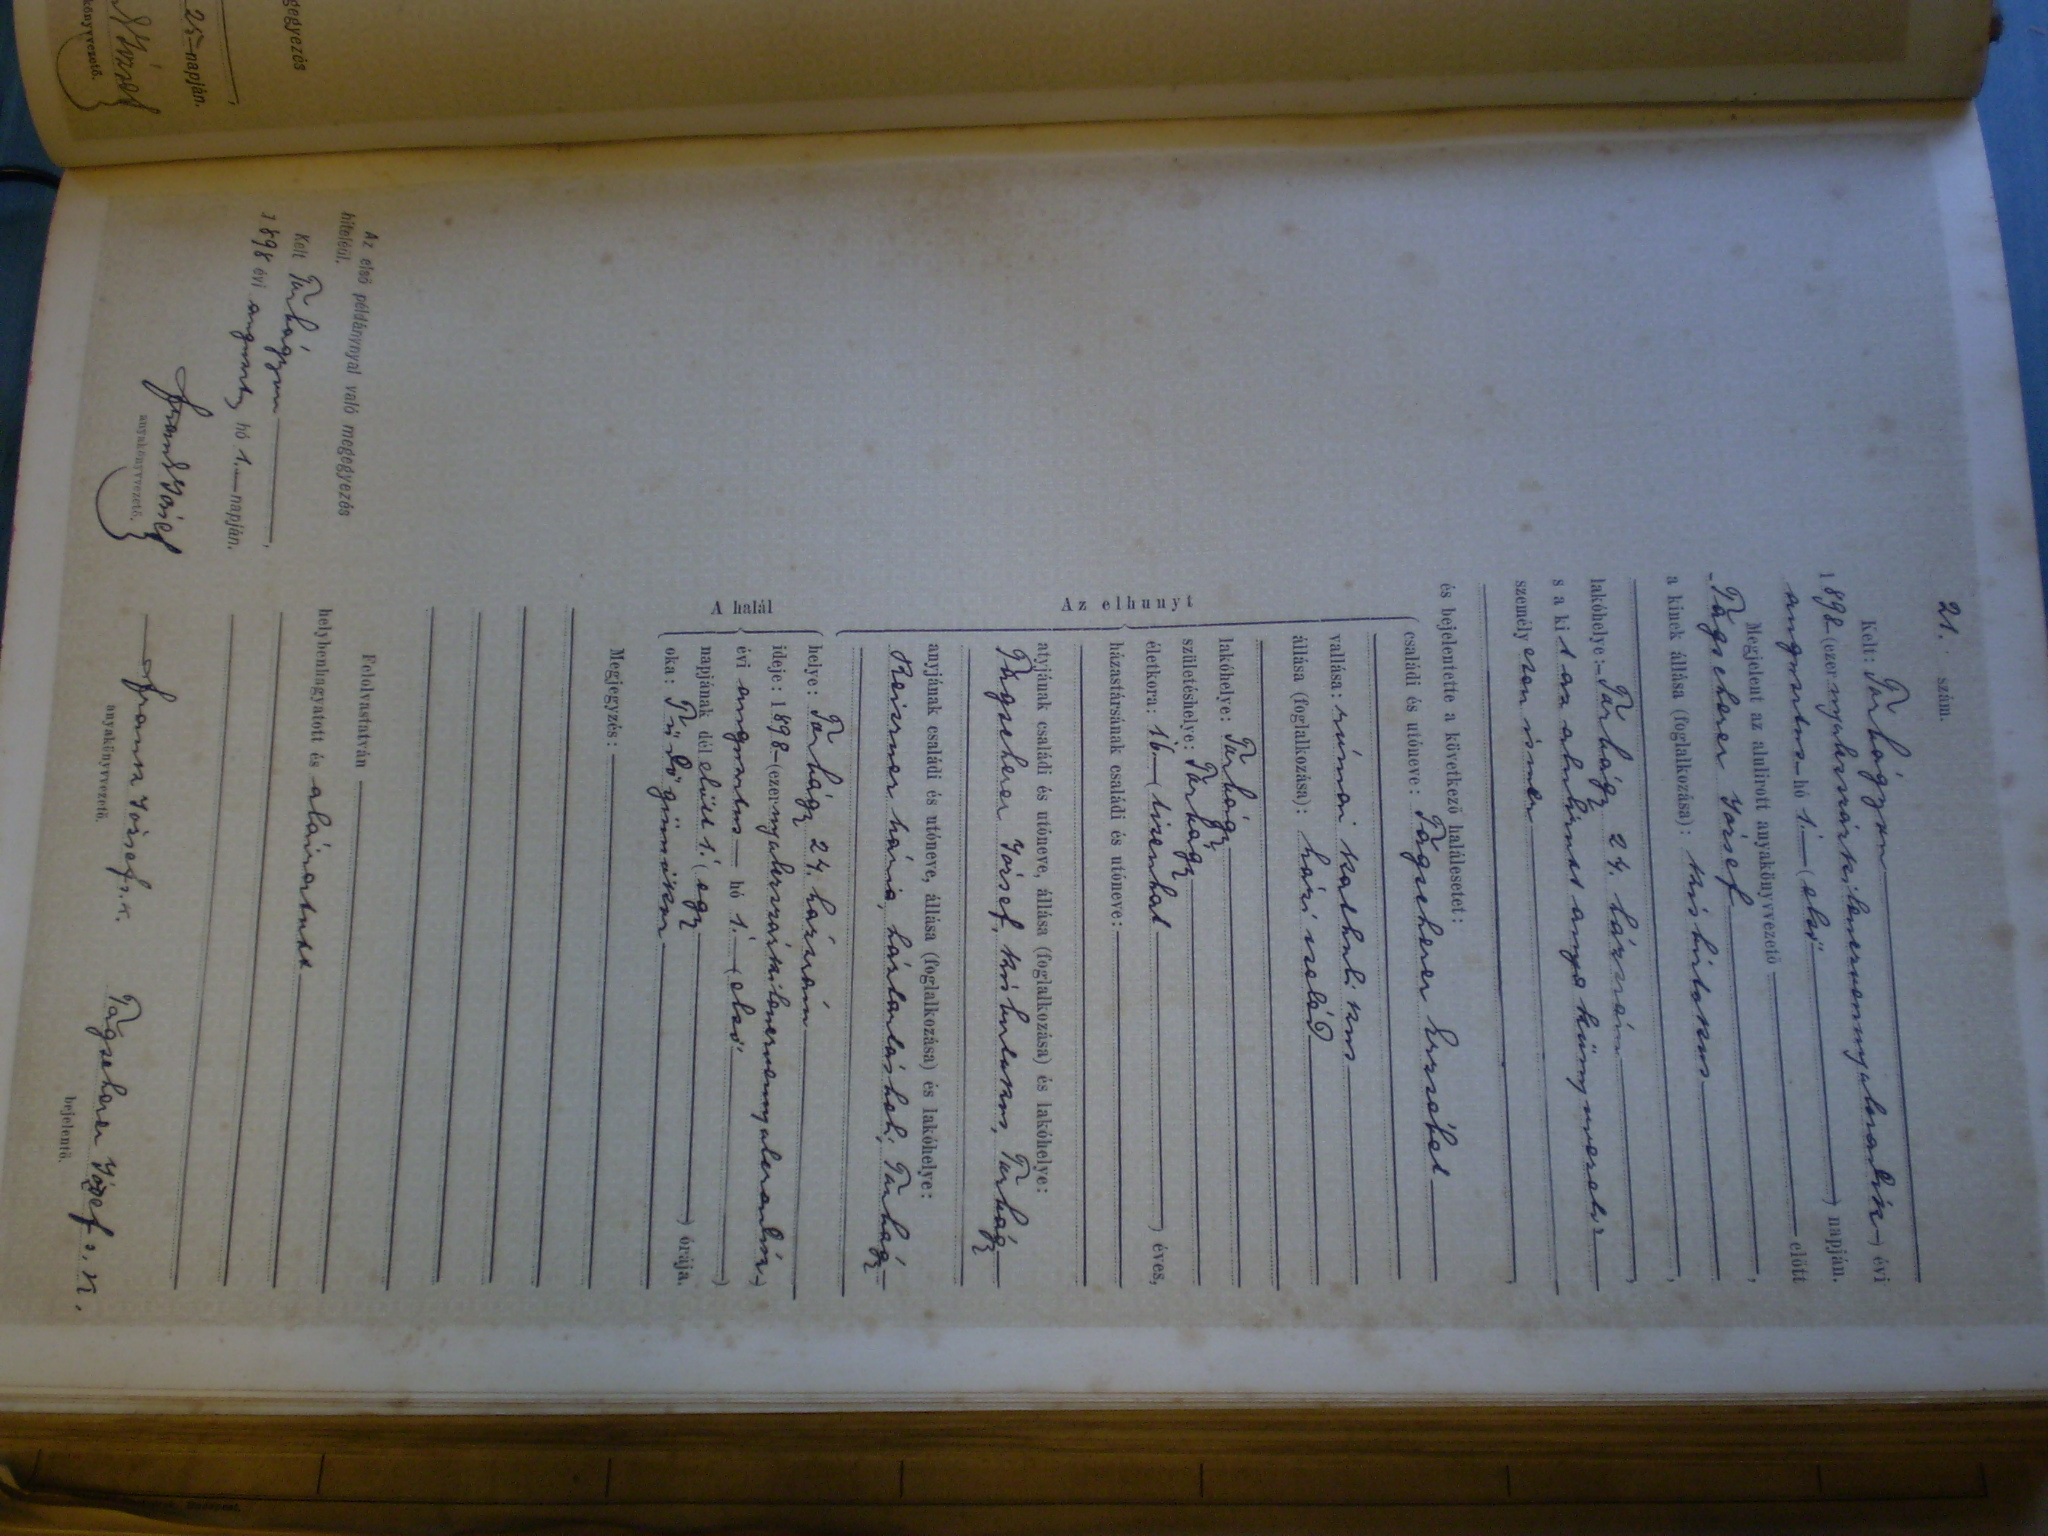 21. szám.
Kelt: Tárhágyon
1898 (ezernyolczszázkilenczvennyolczadik) évi
augusztus hó 1. (első) napján.
Megjelent az alulirott anyakönyvvezető előtt
Tagscherer József,
a kinek állása (foglalkozása): kis birtokos,
lakóhelye: 24. házszám,
s a ki t az alulirott anyakönyvvezető
személyesen ismer
és bejelentette a következő halálesetet:
Az elhunyt
családi és utóneve: Tagscherer Erzsébet
vallása: római katholikus
állása (foglalkozása): házi cseléd
lakóhelye:
születéshelye:
életkora: 16 (tizenhat) éves,
házastársának családi és utóneve:
atyjának családi és utóneve, állása (foglalkozása) és lakóhelye:
Tagscherer József, kis birtokos,
anyjának családi és utóneve, állása (foglalkozása) és lakóhelye:
Mária, háztartásbeli,
A halál
helye: 24. házszám
ideje: 1898 (ezernyolczszázkilenczvennyolczadik)
évi augusztus hó 1. (első)
napjának dél előtt 1. (egy) órája.
oka: Tüdőgümőkór
Megjegyzés:
Felolvastatván
helybenhagyatott és aláiratott
József s. k. Tagscherer József s. k.
anyakönyvvezető. bejelentő.
Az első példánynyal való megegyezés
hiteléül.
Kelt
1898 évi augusztus hó 1. napján.
József
anyakönyvvezető.
gegyezés
25 napján.
József
könyvvezető.